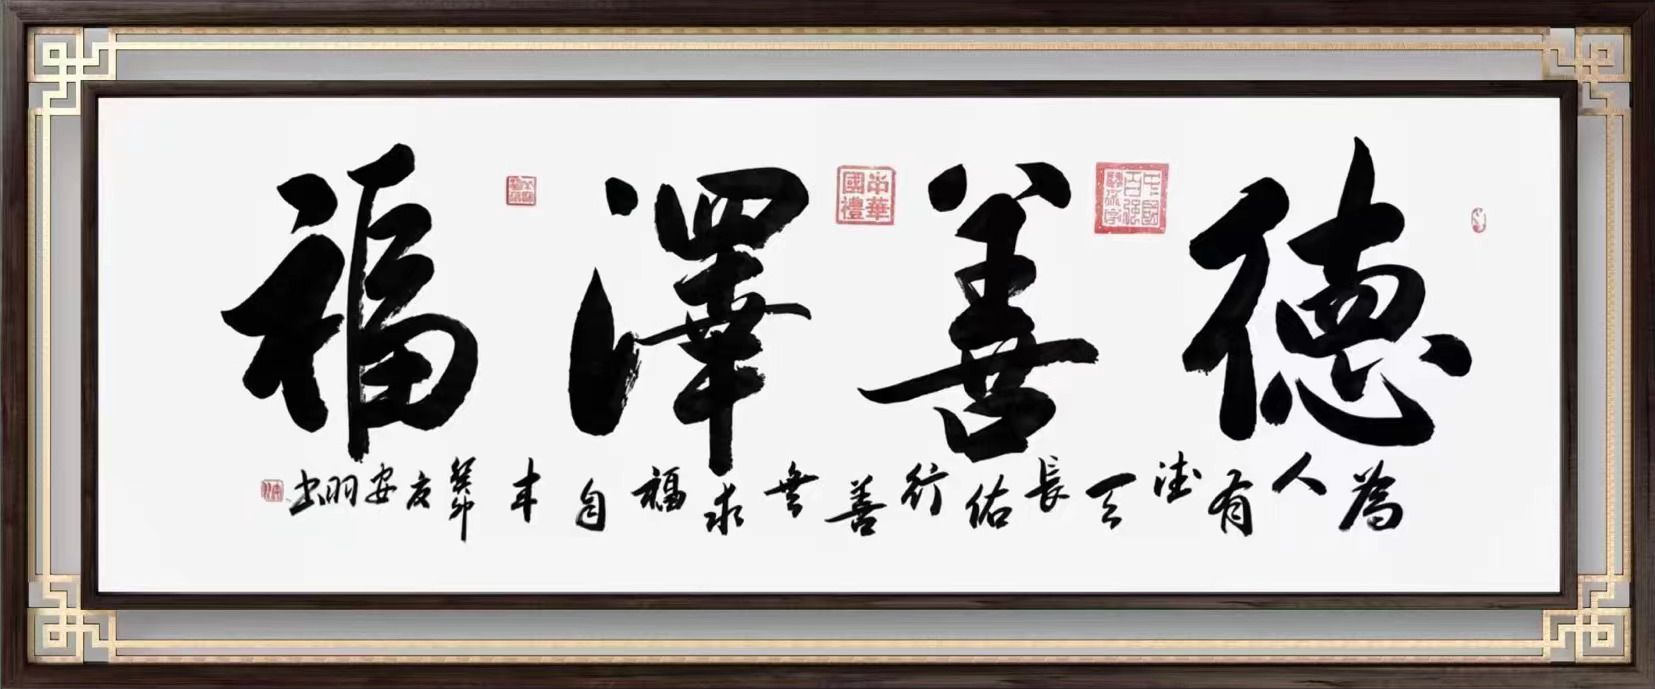 德善澤福
中華國禮
為人有德天長佑行善無求福自来 癸卯 安 书